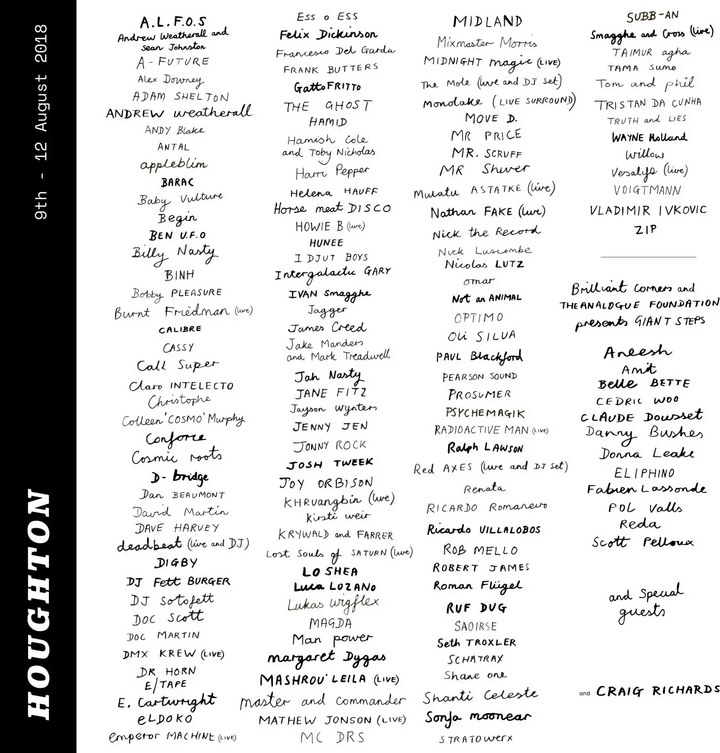 9th - 12 August 2018
HOUGHTON
A.L.F.O.S
Andrew Weatherall and
Sean Johnston
A-FUTURE
Alex Downey
ADAM SHELTON
ANDREW weatherall
ANDY Blake
ANTAL
appleblim
BARAC
Baby Vulture
Begin
BEN U.F.O
Billy Nasty
BINH
Bobby PLEASURE
Burnt Friedman (live)
CALIBRE
CASSY
Call Super
Claro INTELECTO
Christophe
Colleen 'COSMO' Murphy
Conforce
Cosmic roots
D-bridge
Dan BEAUMONT
David Martin
DAVE HARVEY
deadbeat (live and DJ)
DIGBY
DJ Fett BURGER
DJ Sotofett
DOC Scott
DOC MARTIN
DMX KREW (LIVE)
DR HORN
E/TAPE
E. Cartwright
eLDOKO
emperor MACHINE (LIVE)
Ess o Ess
Felix Dickinson
Francesco Del Garda
FRANK BUTTERS
Gatto FRITTO
THE GHOST
HAMID
Hamish Cole
and Toby Nicholas
Harri Pepper
Helena HAUFF
Horse meat DISCO
HOWIE B (live)
HUNEE
I DJUT BOYS
Intergalactic GARY
IVAN Smagghe
Jagger
James Creed
Jake Manders
and Mark Treadwell
Jah Nasty
JANE FITZ
Jayson Wynters
JENNY JEN
JONNY ROCK
JOSH TWEEK
JOY ORBISON
KHRUANGBIN (live)
Kirsti weir
KRYWALD and FARRER
Lost Souls of SATURN (live)
LO SHEA
Luca LOZANO
Lukas wigflex
MAGDA
Man power
margaret Dygas
MASHROU' LEILA (LIVE)
master and commander
MATHEW JONSON (LIVE)
MC DRS
MIDLAND
Mixmaster Morris
MIDNIGHT magic (LIVE)
The Mole (live and DJ set)
Monolake (LIVE SURROUND)
MOVE D.
MR PRICE
MR. SCRUFF
MR Shiver
Mulatu ASTATKE (live)
Nathan FAKE (live)
Nick the Record
Nick Luscombe
Nicolas LUTZ
Omar
Not an ANIMAL
OPTIMO
Oli SILVA
PAUL Blackford
PEARSON SOUND
PROSUMER
PSYCHEMAGIK
RADIOACTIVE MAN (LIVE)
Ralph LAWSON
Red AXES (live and DJ set)
Renata
RICARDO Romaneiro
Ricardo VILLALOBOS
ROB MELLO
ROBERT JAMES
Roman Flügel
RUF DUG
SAOIRSE
Seth TROXLER
SCHATRAX
Shane one
Shanti Celeste
Sonja moonear
STRATOWERX
SUBB-AN
Smagghe and Cross (live)
TAIMUR agha
TAMA Sumo
Tom and phil
TRISTAN DA CUNHA
TRUTH and LIES
WAYNE Holland
Willow
Vesalife (live)
VOIGTMANN
VLADIMIR IVKOVIC
ZIP
Brilliant corners and
THE ANALOGUE FOUNDATION
presents GIANT STEPS
Aneesh
Amit
Belle BETTE
CEDRIC WOO
CLAUDE Dousset
Danny Bushes
Donna Leake
ELIPHINO
Fabien Lassonde
POL Valls
Reda
Scott Pelloux
and Special
guests
and CRAIG RICHARDS